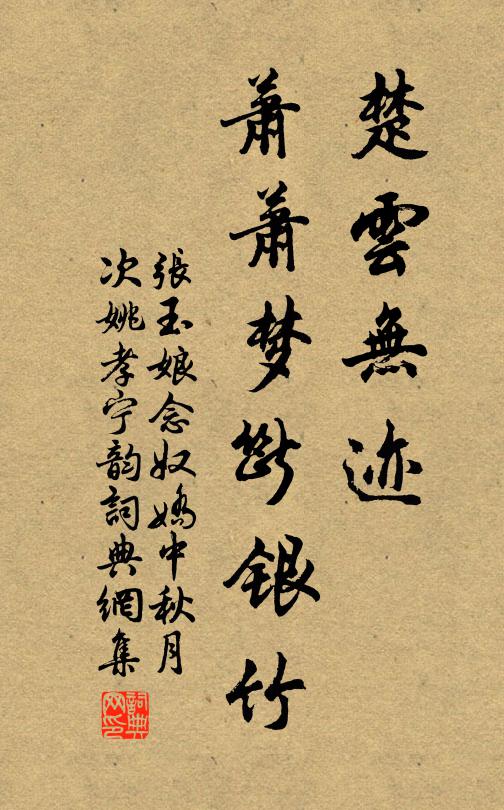 楚雲無迹
蕭蕭梦断銀竹
張玉娘念奴嬌中秋月
次姚孝宁韵詞典網集
詞典网印